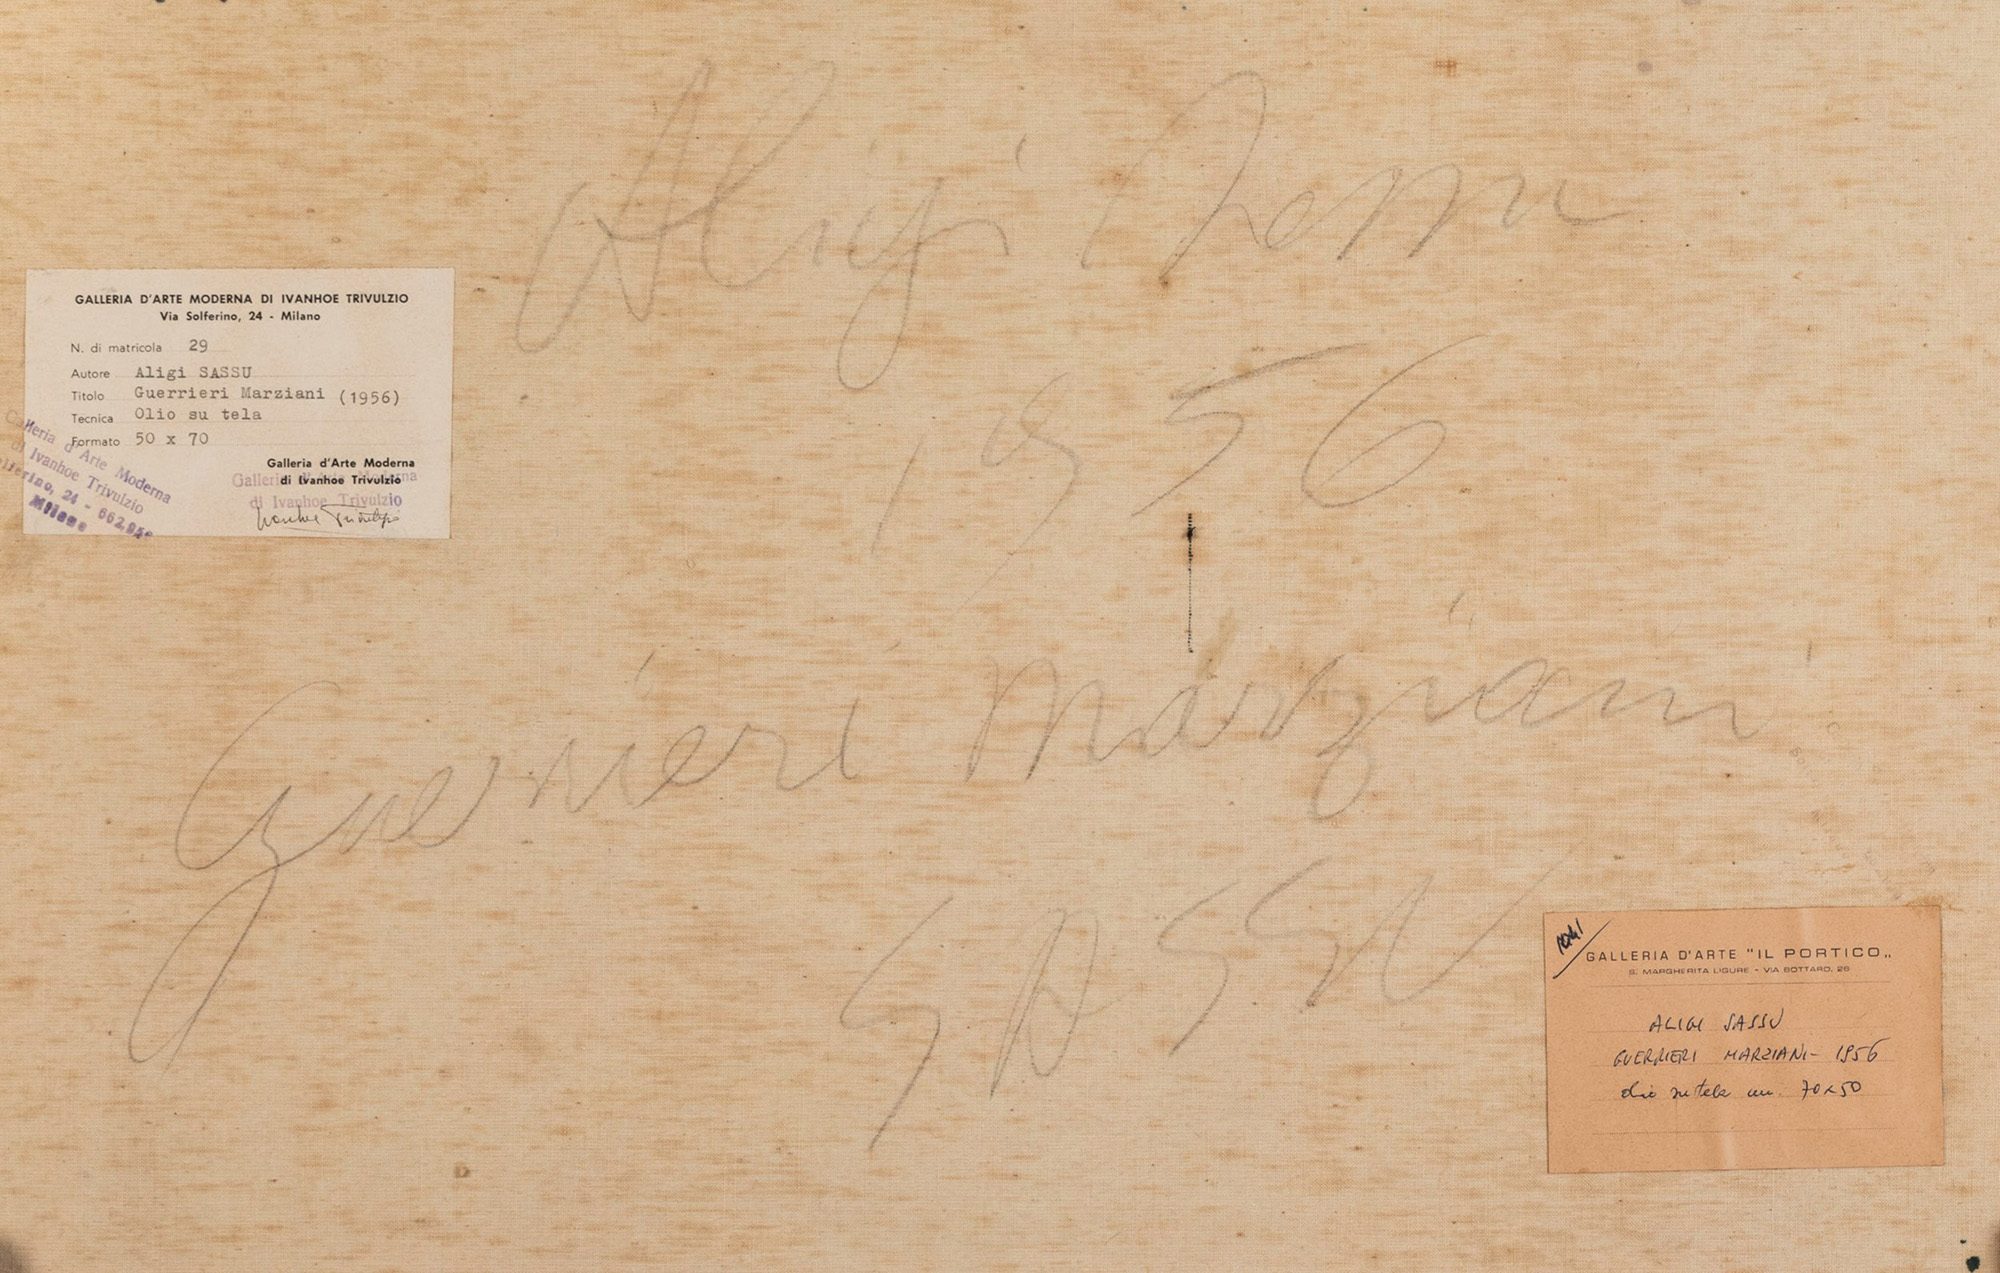 Aligi Sassu
1956
Guerrieri Marziani
SASSU
GALLERIA D'ARTE MODERNA DI IVANHOE TRIVULZIO
Via Solferino, 24 - Milano
N. di matricola 29
Autore Aligi SASSU
Titolo Guerrieri Marziani (1956)
Tecnica Olio su tela
Formato 50 x 70
Galleria d'Arte Moderna
di Ivanhoe Trivulzio
Galleria d'Arte Moderna
di Ivanhoe Trivulzio
Ivanhoe Trivulzio
Galleria d'Arte Moderna
di Ivanhoe Trivulzio
Solferino, 24 - 662.
Milano
1041
GALLERIA D'ARTE "IL PORTICO„
S. MARGHERITA LIGURE - VIA BOTTARO, 28
ALIGI SASSU
GUERRIERI MARZIANI - 1956
olio su tela cm. 70x50